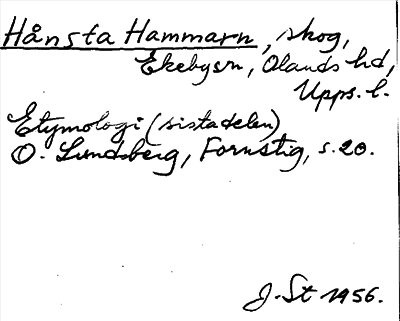 Hånsta Hammarn, skog,
Ekebysn, Olands hd,
Upps. l.
Etymologi (sista delen)
O. Lundberg, Fornstig, s. 20.
J. St 1956.